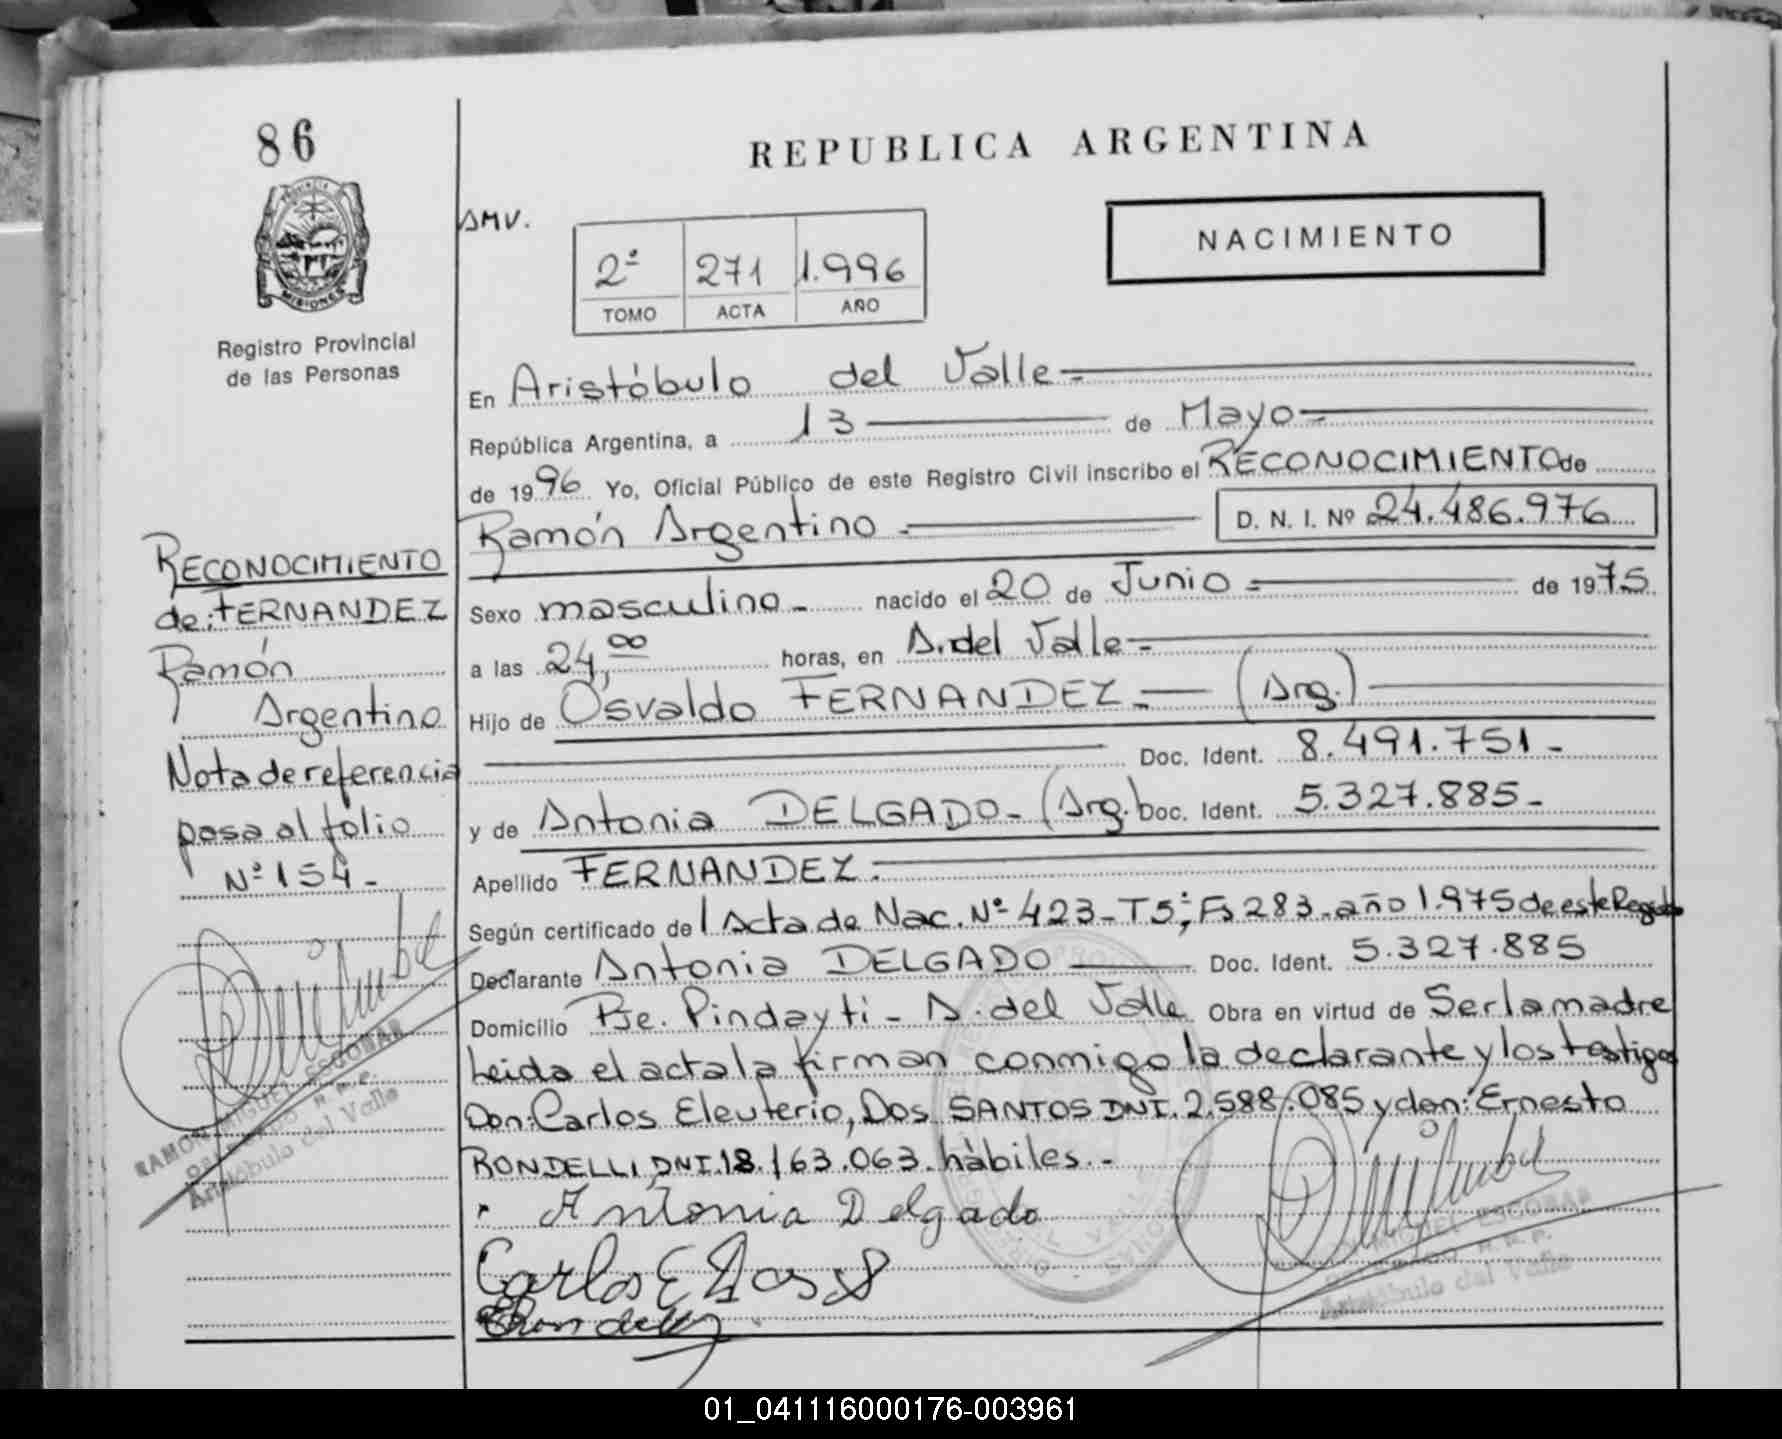 86
REPUBLICA ARGENTINA
PROVINCIA
MISIONES
AMV.
2º 271 1.996
TOMO ACTA AÑO
NACIMIENTO
Registro Provincial
de las Personas
En Aristóbulo del Valle
República Argentina, a 13 de Mayo
de 1996 Yo, Oficial Público de este Registro Civil inscribo el RECONOCIMIENTO de
Ramón Argentino D. N. I. Nº 24.486.976
Sexo masculino nacido el 20 de Junio de 1975
a las 24,00 horas, en A. del Valle
Hijo de Osvaldo FERNANDEZ (Arg.)
Doc. Ident. 8.491.751
y de Antonia DELGADO (Arg.) Doc. Ident. 5.327.885
Apellido FERNANDEZ
Según certificado de Acta de Nac. Nº 423-T5º; Fs 283 año 1.975 de este Registro
Declarante Antonia DELGADO Doc. Ident. 5.327.885
Domicilio Pje. Pindayti - A. del Valle Obra en virtud de Ser la madre
Leida el acta la firman conmigo la declarante y los testigos
Don: Carlos Eleuterio, Dos SANTOS DNI. 2.588.085 y don: Ernesto
RONDELLI, DNI. 18.163.063. hábiles.-
Antonia Delgado
Carlos E Dos S
RECONOCIMIENTO
de: FERNANDEZ
Ramón
Argentino
Nota de referencia
pasa al folio
Nº 154-
RAMON MIGUEL ESCOBAR
Aristóbulo del Valle
MIGUEL ESCOBAR
Aristóbulo del Valle
01_041116000176-003961